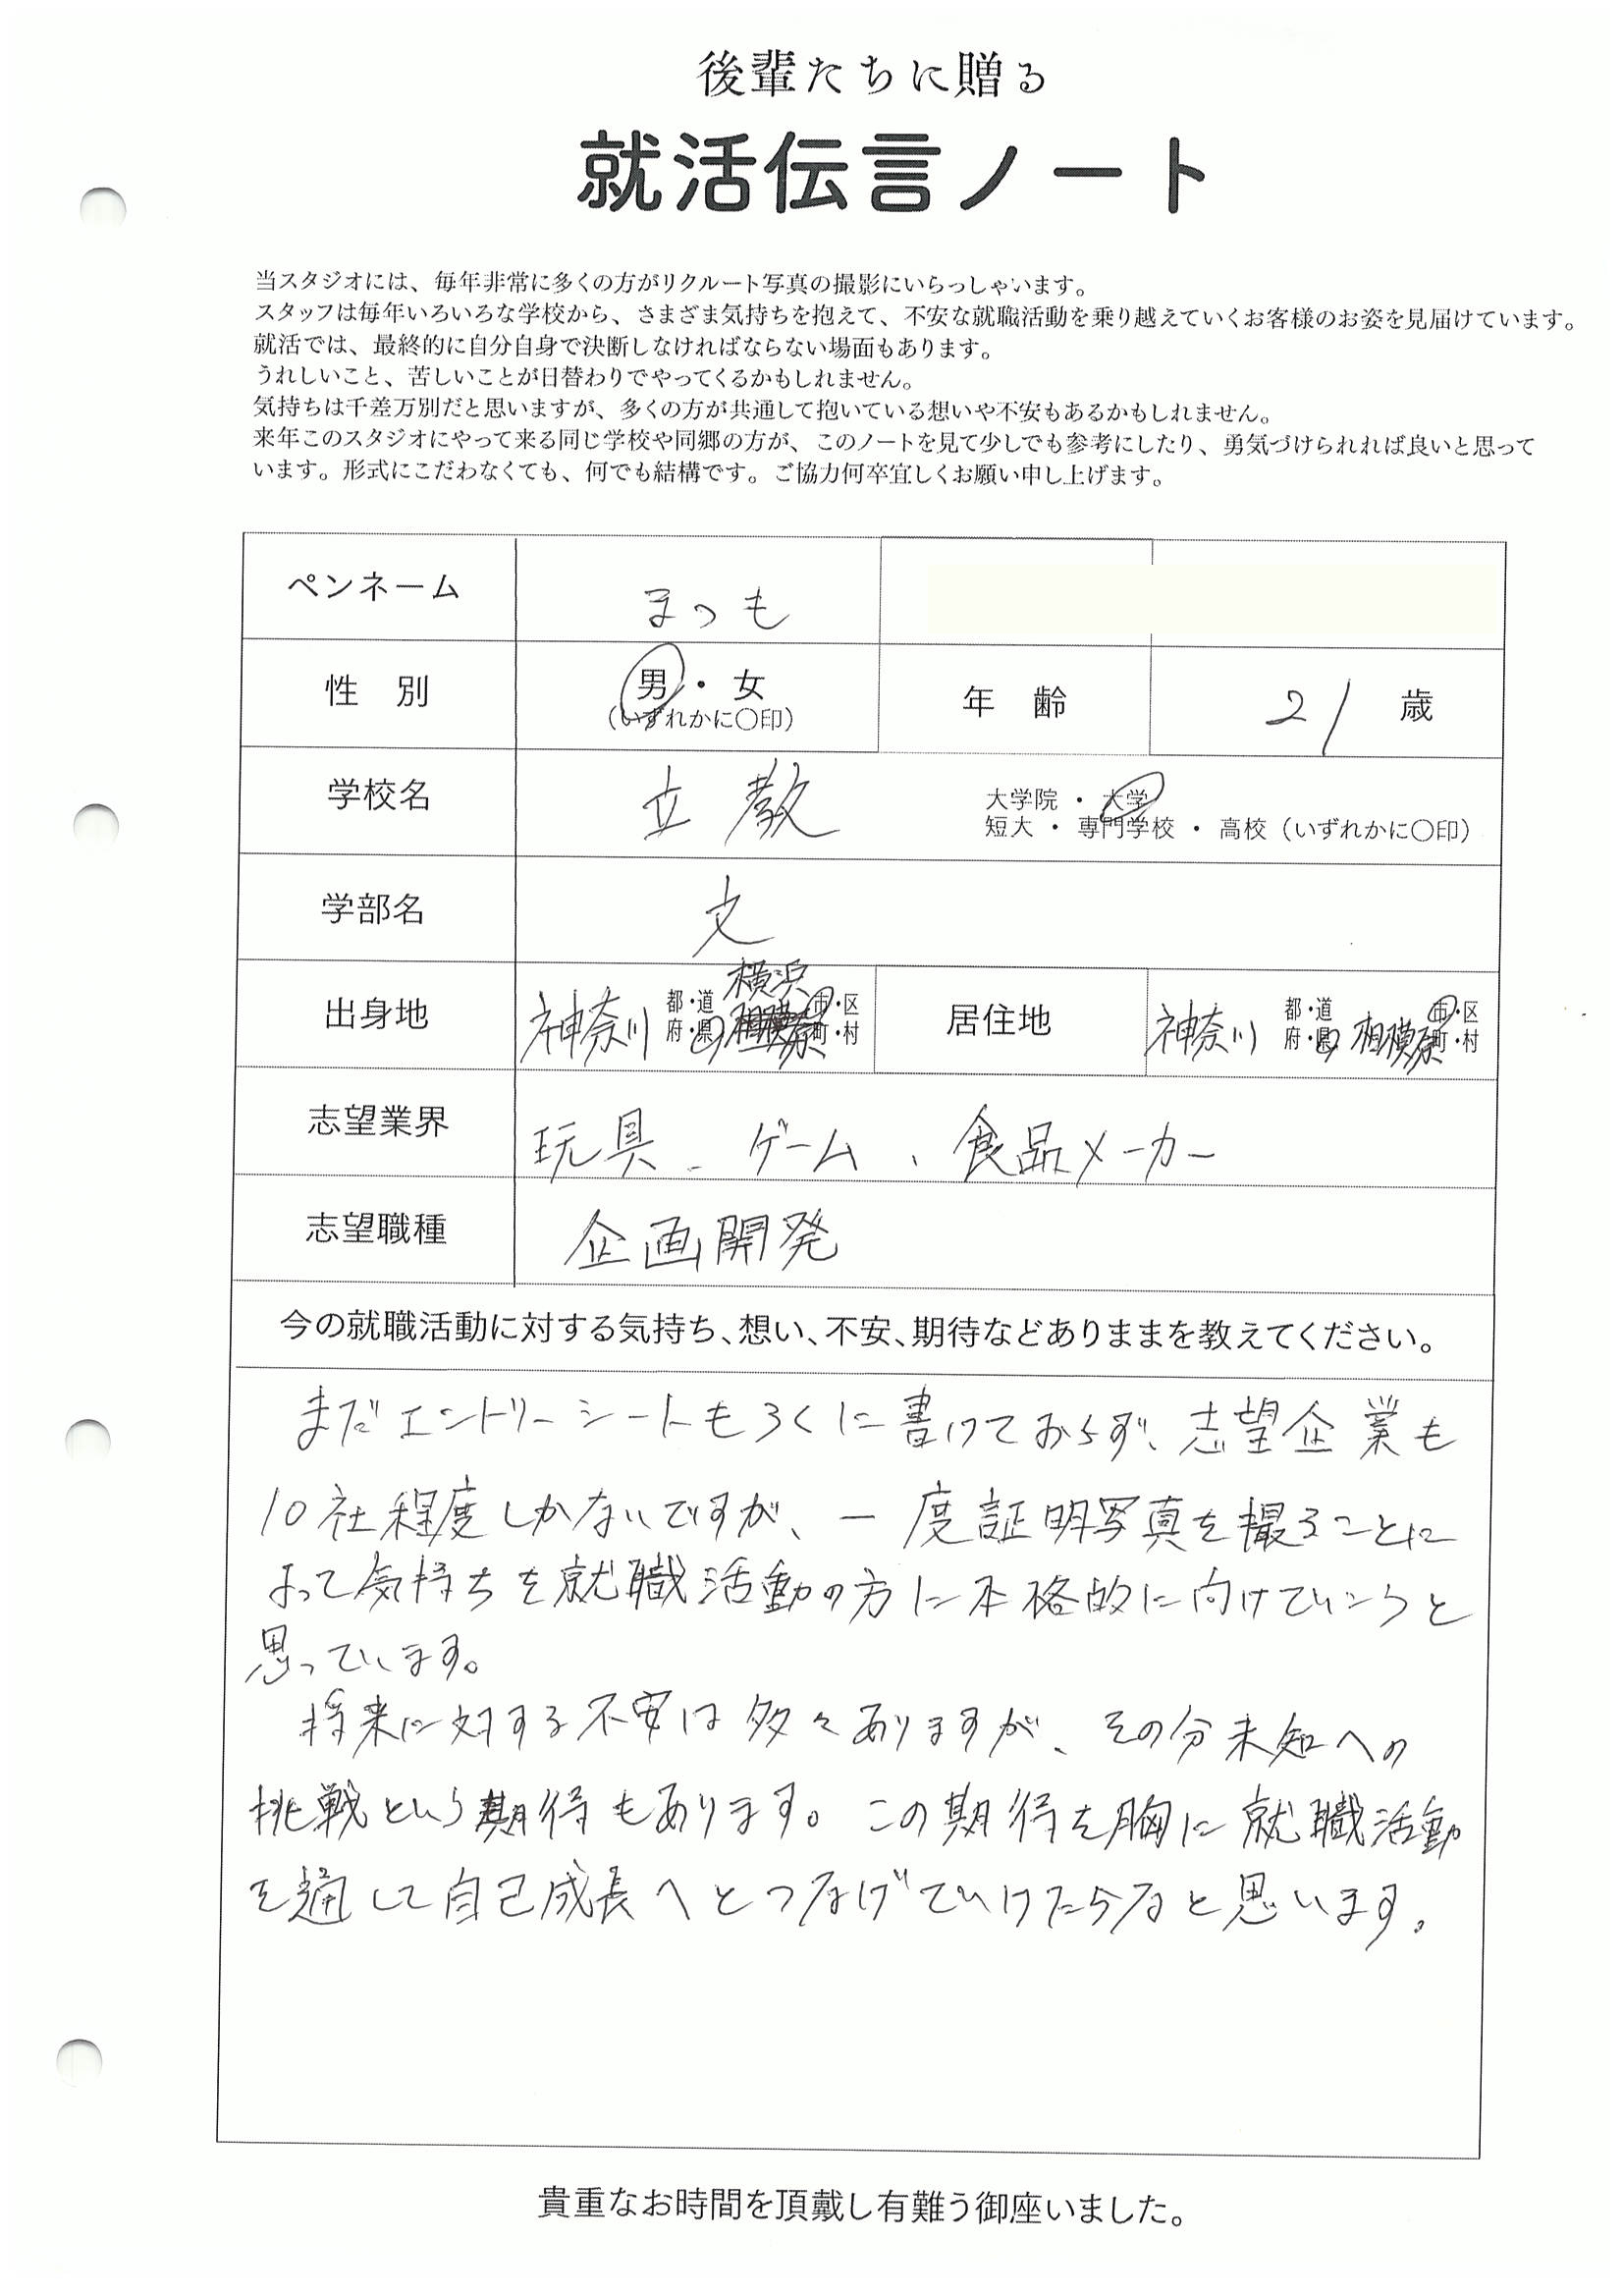 後輩たちに贈る
就活伝言ノート
当スタジオには、毎年非常に多くの方がリクルート写真の撮影にいらっしゃいます。
スタッフは毎年いろいろな学校から、さまざま気持ちを抱えて、不安な就職活動を乗り越えていくお客様のお姿を見届けています。
就活では、最終的に自分自身で決断しなければならない場面もあります。
うれしいこと、苦しいことが日替わりでやってくるかもしれません。
気持ちは千差万別だと思いますが、多くの方が共通して抱いている想いや不安もあるかもしれません。
来年このスタジオにやって来る同じ学校や同郷の方が、このノートを見て少しでも参考にしたり、勇気づけられれば良いと思って
います。形式にこだわなくても、何でも結構です。ご協力何卒宜しくお願い申し上げます。
ペンネーム まつも
性 別 男・女 (いずれかに〇印) 年 齢 21 歳
学校名 立教 大学院 ・ 大学
短大 ・ 専門学校 ・ 高校 (いずれかに〇印)
学部名 文
出身地 神奈川 都・道 府・県 横浜 市・区 町・村 居住地 神奈川 都・道 府・県 相模原 市・区 町・村
志望業界 玩具、ゲーム、食品メーカー
志望職種 企画開発
今の就職活動に対する気持ち、想い、不安、期待などありままを教えてください。
まだエントリーシートもろくに書けておらず、志望企業も
10社程度しかないですが、一度証明写真を撮ることに
よって気持ちを就職活動の方に本格的に向けていこうと
思っています。
将来に対する不安は多々ありますが、その分未知への
挑戦という期待もあります。この期待を胸に就職活動
を通して自己成長へとつなげていけたらなと思います。
貴重なお時間を頂戴し有難う御座いました。